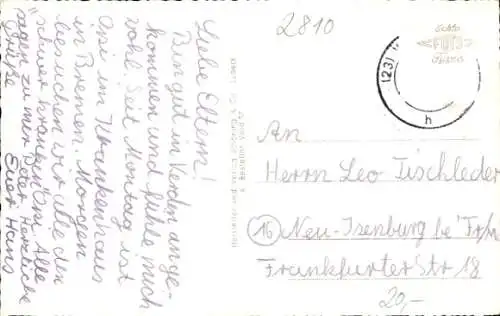 2810
Liebe Eltern!
Bin gut in Verden ange-
kommen und fühle mich
wohl. Seit Montag ist
Opi im Krankenhaus
in Bremen. Morgen
besuchen wir alle den
"schwer kranken" Opi. Alle
sagen zu mir Peter. Herzliche
Grüße Euer Hans
(23)
h
An
Herrn Leo Tischleder
16 Neu-Isenburg bei Fr/M
Frankfurter Str 18
20,-